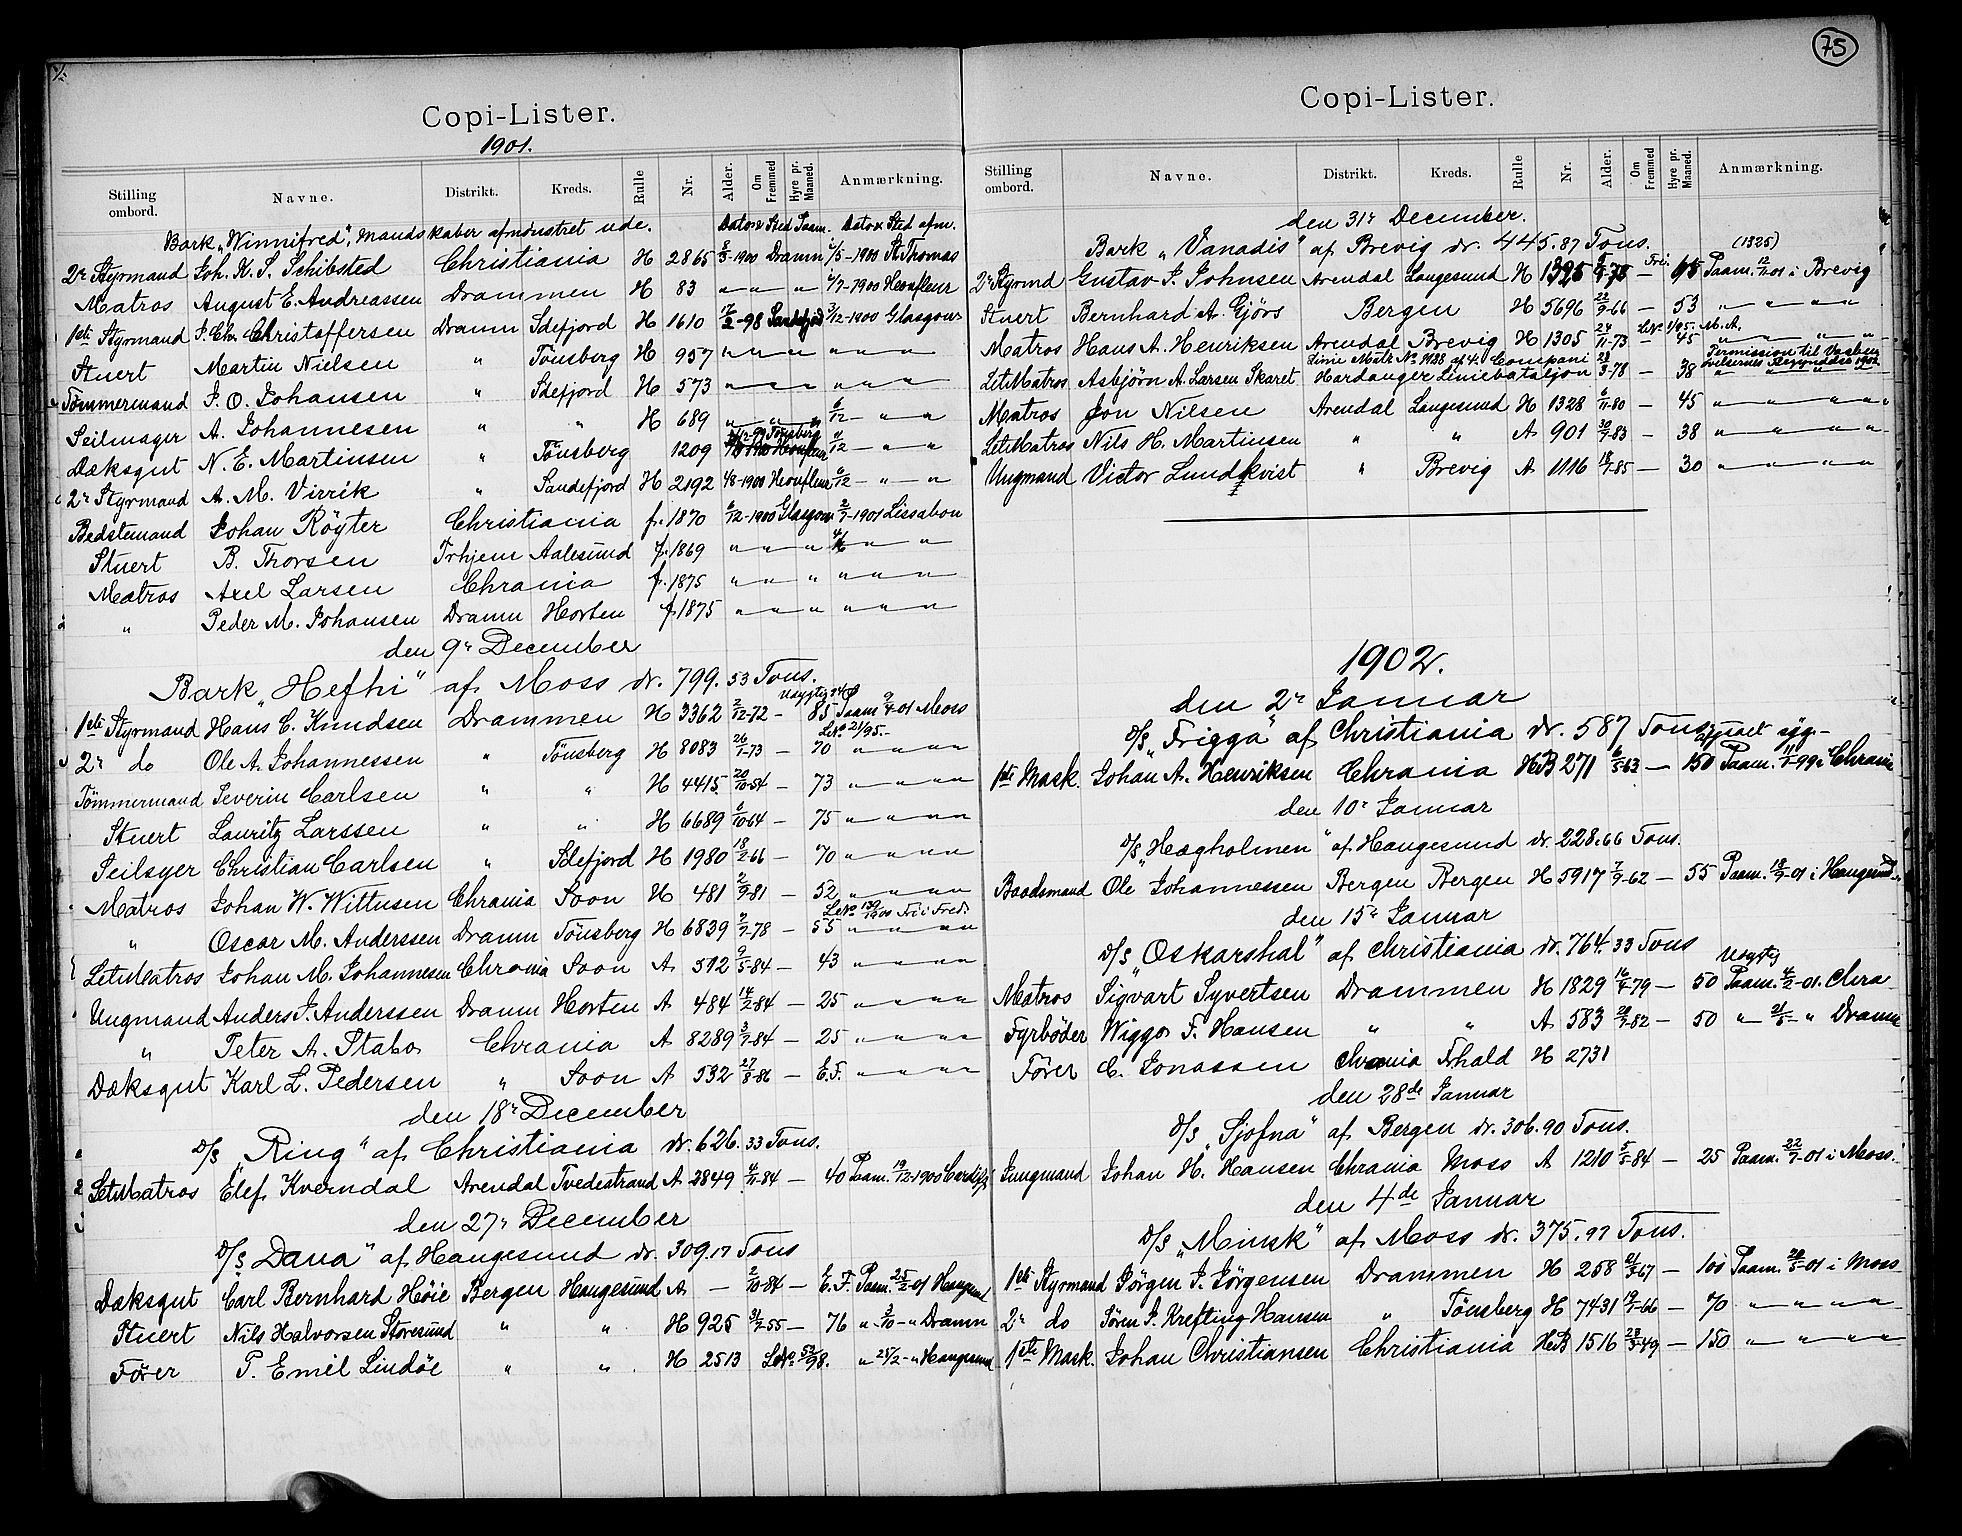 Copi-Lister.
1901.
Stilling ombord. Navne. Distrikt. Kreds. Rulle Nr. Alder. Om Fremmed Hyre pr. Maaned. Anmærkning.
Bark „Winnifred", Mandskaber afmønstret ude. Dato & Sted Paam. Dato & Sted afm.
2n Styrmand Joh. K. S. Schibsted Christiania H 2865 -1900 Dramn -1900 St. Thomas
Matros August E. Andreassen Drammen H 83 " " " -1900 Honfleur
1ste Styrmand J. Chr. Christoffersen Dramn Sdefjord H 1610 17/2-98 Sandefjord 3/12-1900 Glasgow
Stuert Martin Nielsen " Tönsberg H 957 " " " " " "
Tömmermand J. O. Johansen " Sdefjord H 573 " " " " " "
Seilmager A. Johannesen " " H 689 " " " 6/12 - " "
Dæksgut N. E. Martinsen " Tönsberg 1209 Tönsberg /12 - " "
2n Styrmand A. M. Virrik " Sandefjord H 2192 4/8-1900 Honfleur 6/12 - " "
Bedstemand Johan Röyter Christiania f. 1870 6/12-1900 Glasgow 2/7-1901 Lissabon
Stuert B. Thorsen Trhjem Aalesund f. 1869 " " " " "
Matros Axel Larsen Chrania f. 1875 " " " " " "
" Peder M. Johansen Dramn Horten f 1875 " " " " " "
den 9n December
Bark „Hefhi" af Moss dr. 799.53 Tons.
1ste Styrmand Hans C. Knudsen Drammen H 3362 2/12-72 - 85 Paam. 9/4-01 Moss
2n do Ole A. Johannessen " Tönsberg H 8083 26/1-73 - 70 " " " "
Tömmermand Severin Carlsen " " H 4415 20/10-54 - 73 " " " "
Stuert Lauritz Larssen " " H 6689 6/10-64 - 75 " " " "
Seilsyer Christian Carlsen " Sdefjord H 1980 18/2-66 - 70 " " " "
Matros Johan W. Wittusen Chrania Soon H 481 2/9-81 - 52 " " " "
" Oscar M. Anderssen Dramn Tönsberg H 6839 2/7-78 - 55 " " " "
LetMatros Johan M. Johannesen Chrania Soon A 512 9/5-84 - 43 " " " "
Ungmand Anders J. Anderssen Dramn Horten A 484 14/2-84 - 25 " " " "
" Peter A. Stabo Chrania A 8289 3/7-84 - 25 " " " "
Dæksgut Karl L. Pedersen " Soon A 532 27/8-86 - E.F. " " " "
den 18n December
D/S „Ring" af Christiania dr. 626.33 Tons.
LetMatros Elef Kverndal Arendal Tvedestrand A 2849 4/11-84 - 40 Paam. 19/12-1900 Cardiff
den 27n December
D/S „Dana" af Haugesund dr. 309.17 Tons
Dæksgut Carl Bernhard Höie Bergen Haugesund A - 2/10-84 - E.F. Paam. 25/2-01 Haugsund
Stuert Nils Halvorsen Storesund " " H 925 31/7-55 - 76 " 3/10-" Dramn
Förer P. Emil Lindöe " " H 2513 LNo. 53/98. " 25/2-" Haugsund
75
Copi-Lister.
Stilling ombord. Navne. Distrikt. Kreds. Rulle Nr. Alder. Om Fremmed Hyre pr. Maaned. Anmærkning.
den 31n December.
Bark „Vanadis" af Brevig dr. 445.87 Tons.
(1325)
2n Styrmd Gustav J. Johnsen Arendal Langesund H 1325 -78 - Fri. 65 Paam. 12/2-01 i Brevig
Stuert Bernhard A. Gjörs Bergen H 5696 22/9-66 - 53 " " " "
Matros Hans A. Henriksen Arendal Brevig H 1305 24/11-73 - 45 " " "
Linie Matr. No 1188 af 4. Compani
LetMatros Asbjörn A. Larsen Skaret Hardanger Liniebataljon 28/3-78 - 38 " " " "
Matros Jon Nilsen Arendal Langesund H 1328 6/11-80 - 45 " " " "
LetMatros Nils H. Martinsen " " A 901 30/7-83 - 38 " " " "
Ungmand Victor Lundkvist " Brevig A 1116 18/7-85 - 30 " " " "
1902.
den 2n Januar
D/S „Frigga" af Christiania dr. 587 Tons
1ste Mask. Johan A. Henriksen Chrania HB 271 6/5-63 - 150 Paam. 11/1-99 i Chrania
den 10n Januar
D/S „Hægholmen" af Haugesund dr. 228.66 Tons.
Baadsmand Ole Johannessen Bergen Bergen H 5917 7/9-62 - 55 Paam. 18/9-01 i Haugsund
den 15n Januar
D/S „Oskarshal" af Christiania dr. 764.33 Tons
Matros Sigvart Syvertsen Drammen H 1829 16/4-79 - 50 Paam. 4/2-01. Chra
Fyrböder Wiggo F. Hansen " " A 583 20/7-82 - 50 " 21/5-" Dramn
Förer C. Jonassen Chrania Frhald H 2731
den 28de Januar
D/S „Sjofna" af Bergen dr. 306.90 Tons.
Jungmand Johan H. Hansen Chrania Moss A 1210 5/5-84 - 25 Paam. 22/7-01 i Moss.
den 4de Januar
D/S „Minsk" af Moss dr. 375.97 Tons.
1ste Styrmand Jörgen J. Jörgensen Drammen H 258 21/3-67 - 105 Paam. 20/5-01 i Moss
2n do Sören J. Krefting Hansen " Tönsberg H 7431 19/7-66 - 70 " " " "
1ste Mask. Johan Christiansen Christiania HB 1516 28/3-49 - 150 " " " "